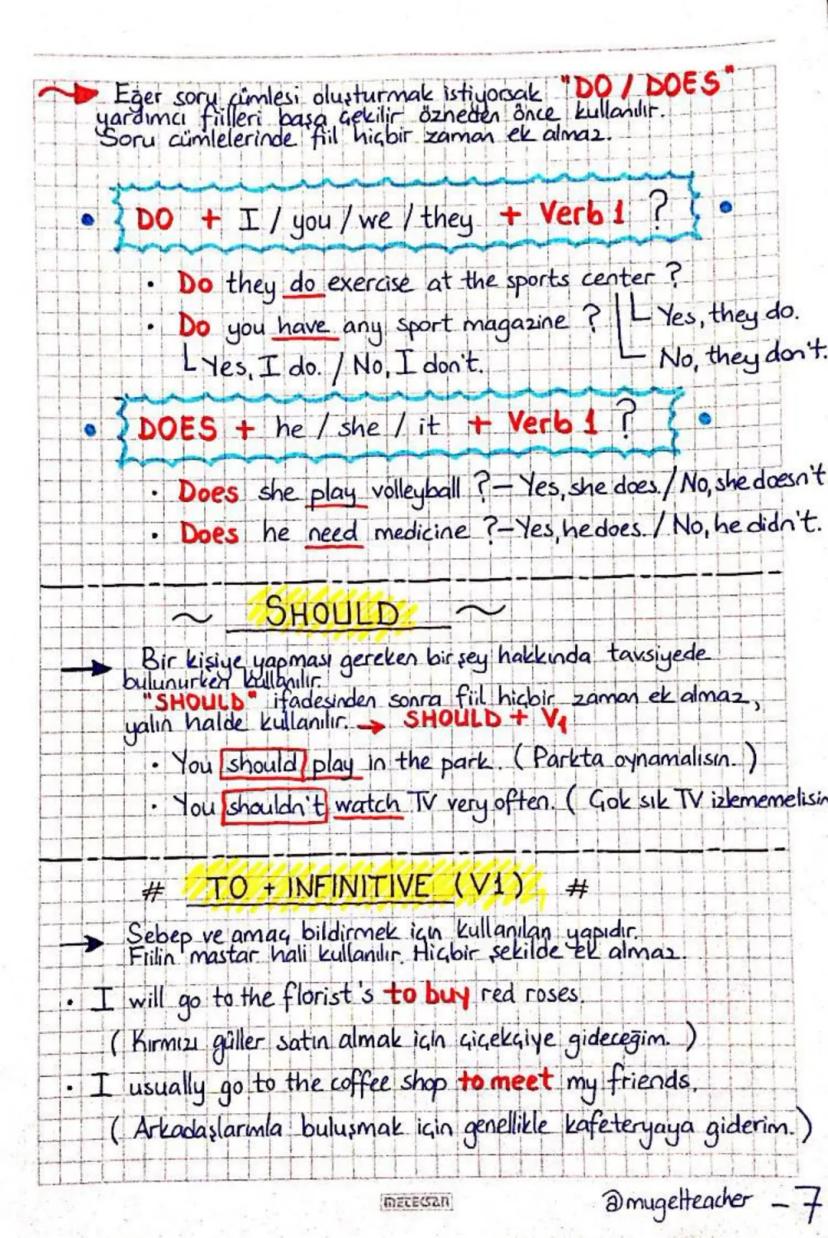 Eğer soru cümlesi oluşturmak istiyorsak "DO / DOES"
yardımcı fiilleri başa çekilir özneden önce kullanılır.
Soru cümlelerinde fiil hiçbir zaman ek almaz.
DO + I / you / we / they + Verb 1 ?
• Do they do exercise at the sports center ?
Yes, they do.
No, they don't.
• Do you have any sport magazine ?
Yes, I do. / No, I don't.
DOES + he / she / it + Verb 1 ?
• Does she play volleyball ? – Yes, she does. / No, she doesn't
• Does he need medicine ? – Yes, he does. / No, he didn't.
~ SHOULD ~
→ Bir kişiye yapması gereken bir şey hakkında tavsiyede
bulunurken kullanılır.
"SHOULD" ifadesinden sonra fiil hiçbir zaman ek almaz,
yalın halde kullanılır. → SHOULD + V1
• You should play in the park. ( Parkta oynamalısın. )
• You shouldn't watch TV very often. ( Çok sık TV izlememelisin
# TO + INFINITIVE (V1) #
→ Sebep ve amaç bildirmek için kullanılan yapıdır.
Fiilin mastar hali kullanılır. Hiçbir şekilde ek almaz.
• I will go to the florist's to buy red roses.
( Kırmızı güller satın almak için çiçekçiye gideceğim. )
• I usually go to the coffee shop to meet my friends.
( Arkadaşlarımla buluşmak için genellikle kafeteryaya giderim. )
METEKSAN
@mugelteacher – 7